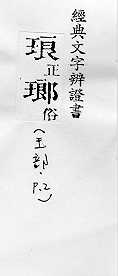 經典文字辨證書
琅正
瑯俗
(王部.
P.2)